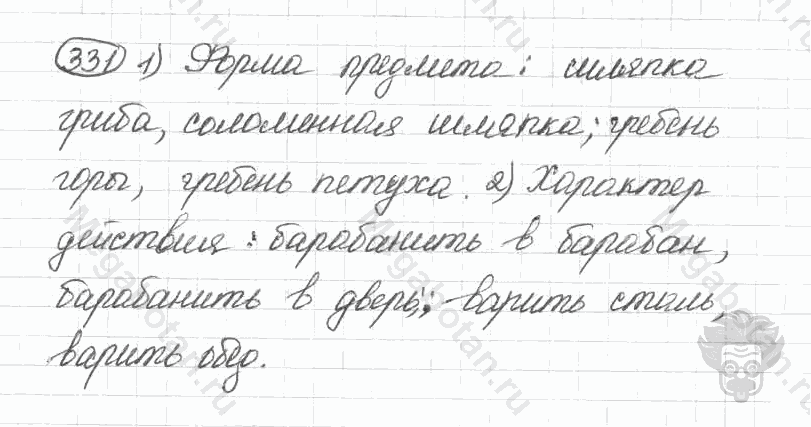 331 1) Форма предмета: шляпка
гриба, соломенная шляпка; гребень
горы, гребень петуха. 2) Характер
действия: барабанить в барабан,
барабанить в дверь; варить сталь,
варить обед.
Megabotan.ru